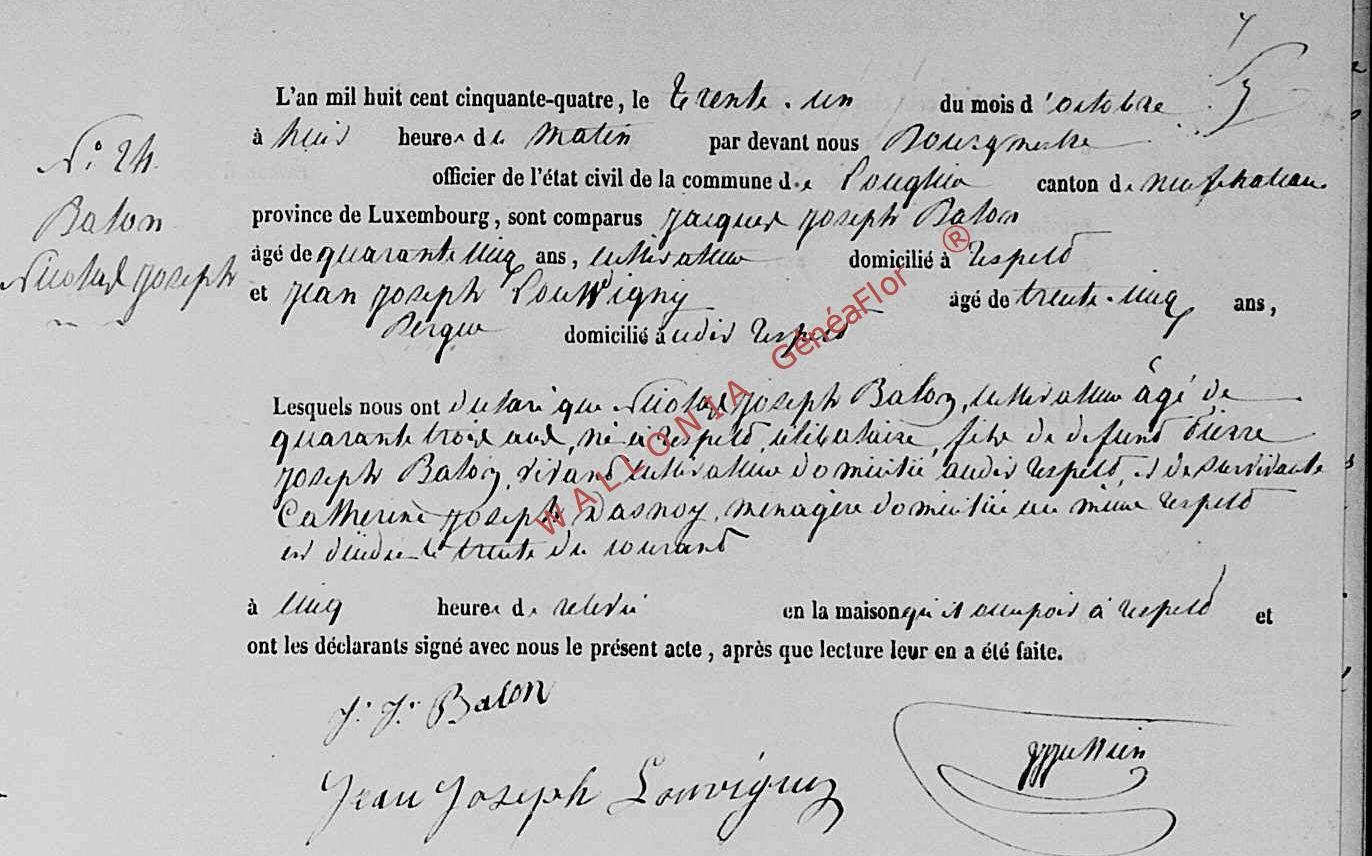 L'an mil huit cent cinquante-quatre, le trente-un du mois d'octobre
à huit heures du matin par devant nous Bourgmestre
officier de l'état civil de la commune de Longlier canton de Neufchateau
province de Luxembourg, sont comparus Jacques Joseph Balon
âgé de quarante cinq ans, cultivateur domicilié à Respelt
et Jean Joseph Louvigny âgé de trente-cinq ans,
domicilié audit Respelt
N° 24.
Balon
Nicolas Joseph
Lesquels nous ont déclaré que Nicolas Joseph Balon, cultivateur âgé de
quarante trois ans, né à Respelt, célibataire, fils de défunt Pierre
Joseph Balon, vivant cultivateur domicilié audit Respelt, et de survivante
Catherine Joseph Dasnoy, ménagère domiciliée au même Respelt
est décédé le trente du courant
à cinq heures de relevée en la maison qu'il occupoit à Respelt et
ont les déclarants signé avec nous le présent acte, après que lecture leur en a été faite.
J. J. Balon
Jean Joseph Louvigny
WALLONIA GénéaFlor ®